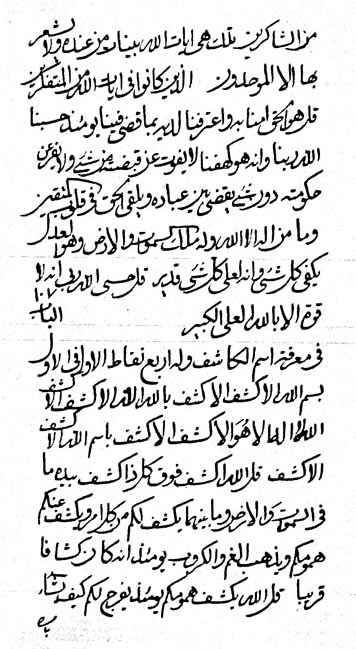 من الشاكرين تلك هي ايات الله بينات من عنده ولا يشعر
بها الا الموحدون الذين كانوا في ايات الله من المتفكرين
قل هو الحق امنا به واعترفنا لديه بما قضى فينا يومئذ حسبنا
الله ربنا وانه هو كهفنا لا يفوت عن قبضته من شيء ولا يعزب عن
حكومته دون شيء يقضي بين عباده ويلقي الحق في قلوب المتقين
وما من اله الا الله وله ملك السموات والارض وهو لعدل
يكفي كل شيء وانه لعلى كل شيء قدير قل حسبي الله ربي انه لا
قوة الا بالله العلي الكبير الباب
في معرفة اسم الكاشف وله اربع نقاط الاول في الاول
بسم الله الاكشف الاكشف بالله الله الاكشف الاكشف
الله لا اله الا هو الاكشف الاكشف باسم الله الاكشف
الاكشف قل الله اكشف فوق كل ذا كشف بيده ما
في السموات والارض وما بينهما يكشف لكم من كل امر ويكشف عنكم
همومكم ويذهب الغم والكروب يومئذ انه كان كشافا
قريبا قل الله يكشف همومكم يومئذ يفرج لكم كيف يشاء